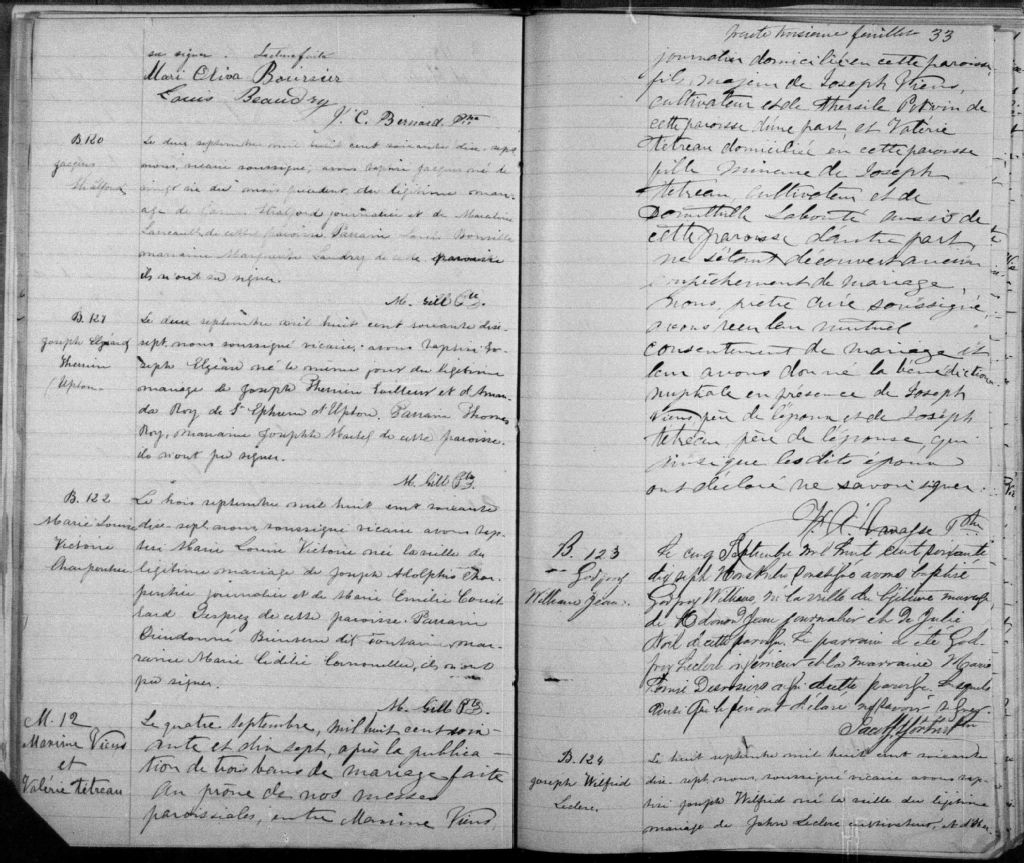 su signer. Lecture faite
Mari Eliva Boursier
Louis Beaudry
J. C. Bernard Ptre
B. 120
Jacques
Stratford
Le deux septembre mil huit cent soixante dix-sept
nous, vicaire soussigné, avons baptisé Jacques né le
vingt six du mois du légitime mari-
age de Stratford journalier et de
de cette paroisse. Parrain Louis
marraine Marguerite Landry de cette paroisse
ils n'ont su signer.
M. Gill Ptre.
B. 121
Joseph Elzéard
Therrien
Upton
Le deux septembre mil huit cent soixante dix-
sept, nous soussigné vicaire, avons baptisé Jo-
seph Elzéar né le même jour du légitime
mariage de Joseph Therrien tailleur et d'Aman-
da Roy de St Ephrem d'Upton. Parrain Thomas
Roy, marraine Josephte Martel de cette paroisse.
ils n'ont pu signer.
M. Gill Ptre.
B. 122
Marie Louise
Victoire
Charpentier
Le trois septembre mil huit cent soixante
dix-sept, nous, soussigné vicaire avons bap-
tisé Marie Louise Victoire née la veille du
légitime mariage de Joseph Adolphis Char-
pentier journalier et de Marie Emilie Couil-
lard Desprez de cette paroisse. Parrain
Dieudonné Bienvenu dit Fontaine, mar-
raine Marie ils n'ont
pu signer.
M. Gill Ptre.
M. 12
Maxime Viens
et
Valérie Tetreau
Le quatre septembre, mil huit cent soix-
ante et dix sept, après la publica-
tion de trois bans de mariage faite
au prône de nos messes
paroissiales, entre Maxime Viens,
trente troisième feuillet 33
journalier domicilié en cette paroisse,
fils majeur de Joseph Viens,
cultivateur et de Thersile Potvin de
cette paroisse d'une part, et Valérie
Tetreau domiciliée en cette paroisse
fille mineure de Joseph
Tetreau cultivateur et de
Domithille Labonté aussi de
cette paroisse d'autre part,
ne s'étant découvert aucun
empêchement de mariage,
Nous, prêtre curé soussigné,
avons reçu leur mutuel
consentement de mariage et
leur avons donné la bénédiction
nuptiale en présence de Joseph
Viens père de l'époux et de Joseph
Tetreau, père de l'épouse, qui
ainsi que les dits époux
ont déclaré ne savoir signer.
Ptre
B. 123
Godfroy
William Jean.
Le cinq Septembre mil huit cent soixante
dix sept Nous Ptre soussigné avons baptisé
Godfroy William, né la veille du légitime mariage
de Jean journalier et de Julie
de cette paroisse. Le parrain a été God-
froy Leclerc et la marraine Marie
Desrosiers de cette paroisse, lesquels
ainsi que le père ont déclaré ne savoir signer
Ptre
B. 124
Joseph Wilfrid
Leclerc.
Le huit septembre mil huit cent soixante
dix-sept, nous, soussigné vicaire avons bap-
tisé Joseph Wilfrid né la veille du légitime
mariage de John Leclerc cultivateur, et